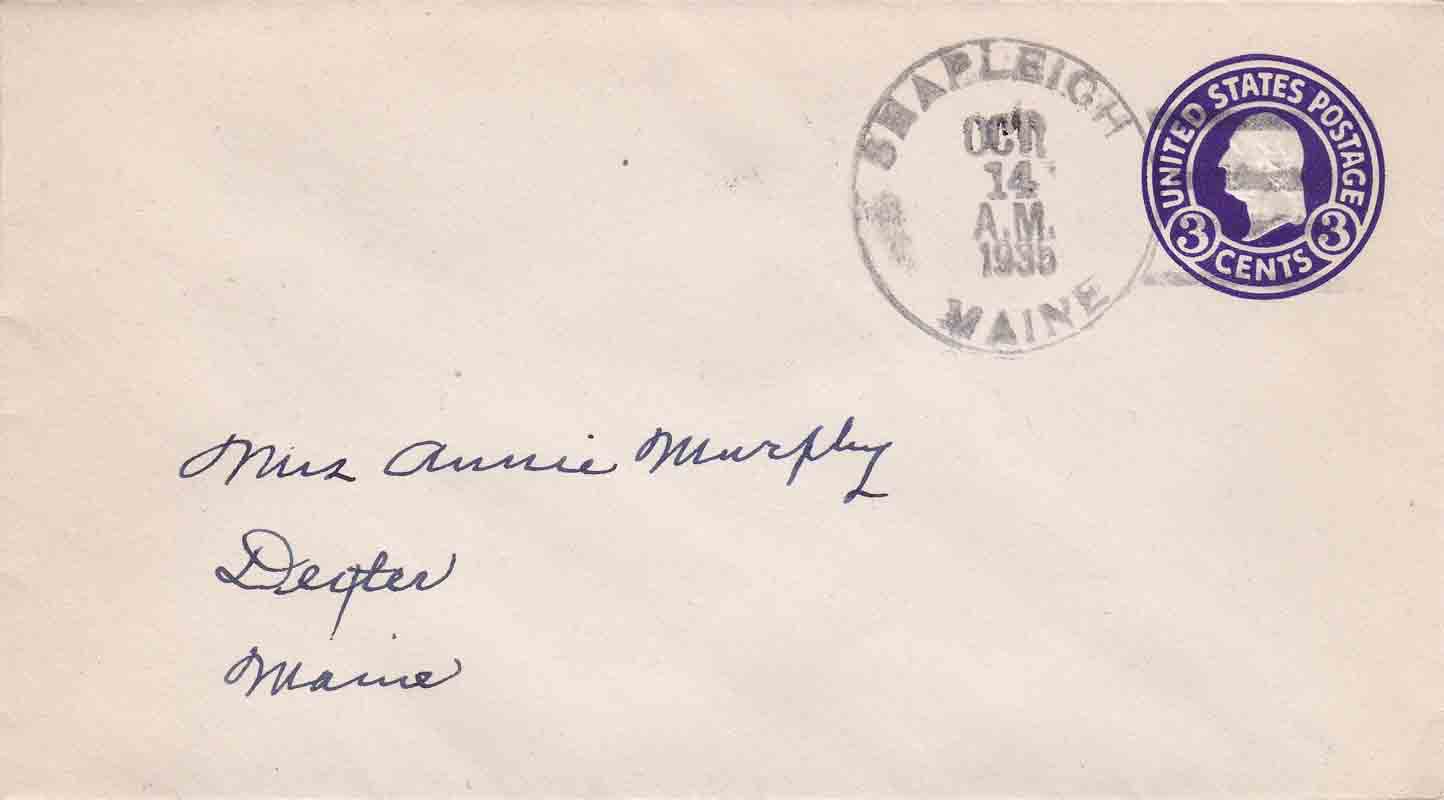 SHAPLEIGH
OCT
14
A.M.
1935
MAINE
UNITED STATES POSTAGE
3 CENTS 3
Mrs Annie Murphy
Dexter
Maine